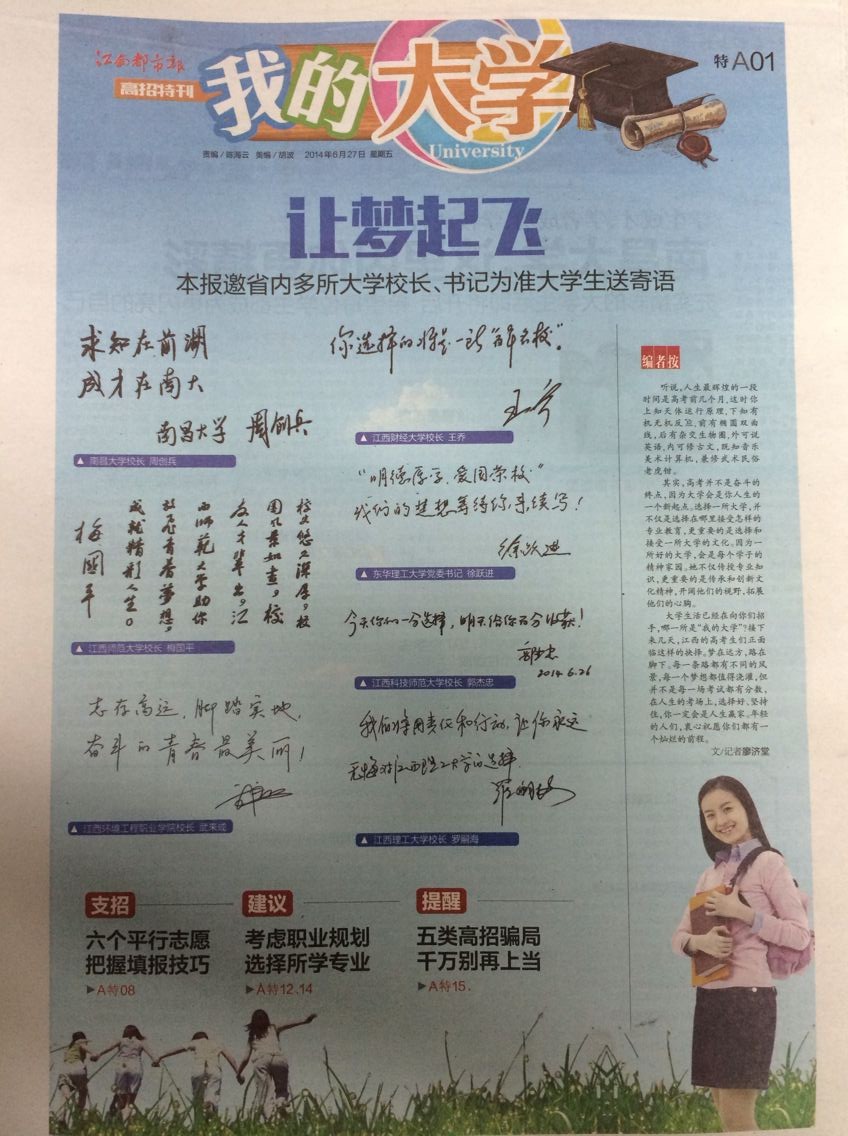 江南都市报
高招特刊
我的大学
University
特A01
责编/陈海云 美编/胡波 2014年6月27日 星期五
让梦起飞
本报邀省内多所大学校长、书记为准大学生送寄语
求知在前湖
成才在南大
南昌大学 周创兵
▲ 南昌大学校长 周创兵
你选择的将是一所“百年名校”。
王乔
▲ 江西财经大学校长 王乔
“明德厚学、爱国荣校”
我们的梦想等待你来续写!
徐跃进
▲ 东华理工大学党委书记 徐跃进
校史悠久深厚,校
园风景如画,校
友人才辈出,江
西师范大学助你
放飞青春梦想,
成就精彩人生。
梅国平
▲ 江西师范大学校长 梅国平
今天你的一分选择,明天给你百分收获!
郭杰忠
2014.6.26
▲ 江西科技师范大学校长 郭杰忠
志存高远,脚踏实地,
奋斗的青春最美丽!
▲ 江西环境工程职业学院校长
我们将用责任和行动,让你永远
无悔对江西理工大学的选择.
罗嗣海
▲ 江西理工大学校长 罗嗣海
编者按
听说,人生最辉煌的一段
时间是高考前几个月,这时你
上知天体运行原理,下知有
机无机反应,前有椭圆双曲
线,后有杂交生物圈,外可说
英语,内可修古文,既知音乐
美术计算机,兼修武术民俗
老虎钳。
其实,高考并不是奋斗的
终点,因为大学会是你人生的
一个新起点。选择一所大学,并
不仅是选择在哪里接受怎样的
专业教育,更重要的是选择和
接受一所大学的文化。因为一
所好的大学,会是每个学子的
精神家园。她不仅传授专业知
识,更重要的是传承和创新文
化精神,开阔他们的视野,拓展
他们的心胸。
大学生活已经在向你们招
手,哪一所是“我的大学”?接下
来几天,江西的高考生们正面
临这样的抉择。梦在远方,路在
脚下。每一条路都有不同的风
景,每一个梦想都值得浇灌,但
并不是每一场考试都有分数,
在人生的考场上,选择好、坚持
住,你一定会是人生赢家。年轻
的人们,衷心祝愿你们都有一
个灿烂的前程。
文/记者廖济堂
支招
六个平行志愿
把握填报技巧
▶A特08
建议
考虑职业规划
选择所学专业
▶A特12、14
提醒
五类高招骗局
千万别再上当
▶A特15、